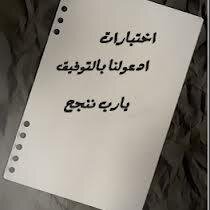 اختبارات
ادعولنا بالتوفيق
يارب ننجح